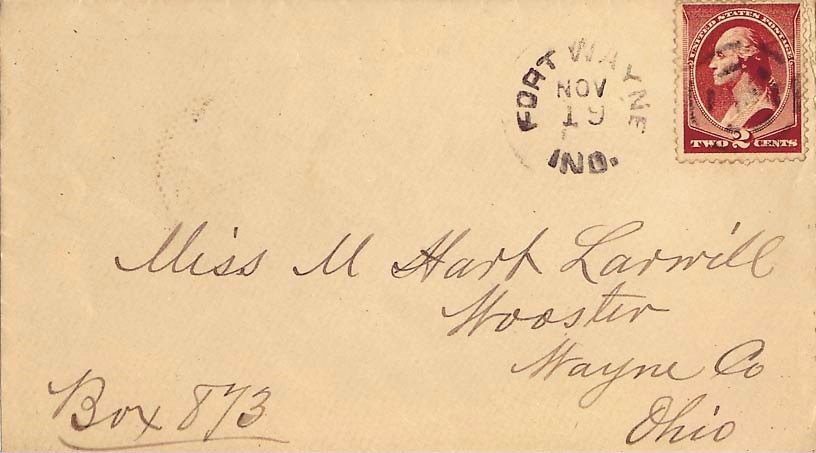 FORT WAYNE
NOV
19
IND.
UNITED STATES POSTAGE
TWO 2 CENTS
Miss M Hart Larwill
Wooster
Wayne Co
Ohio
Box 873